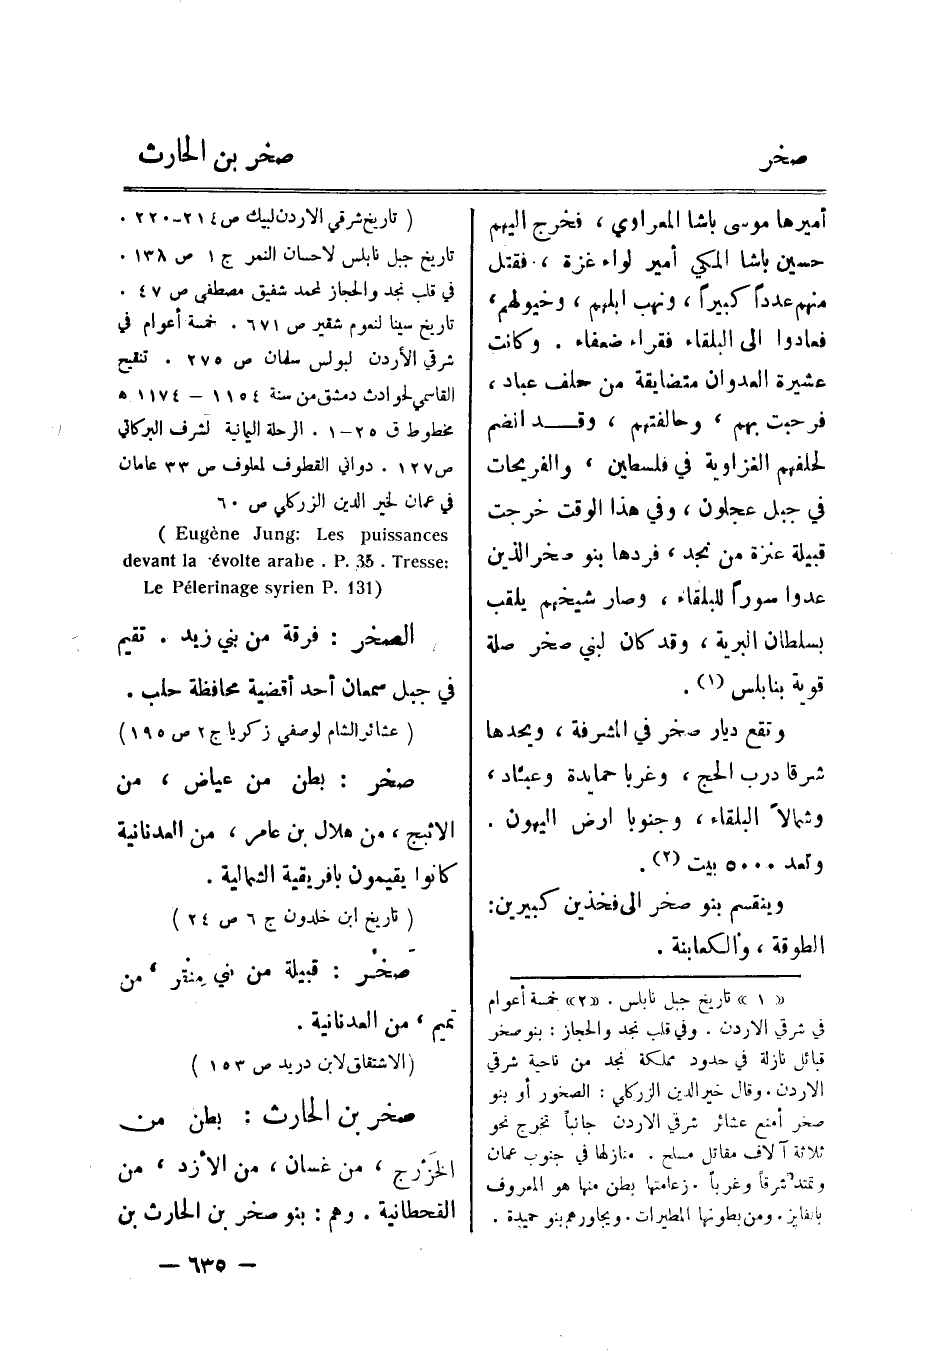 صخر
صخر بن الحارث
أميرها موسى باشا المعراوي ، فخرج اليهم
حسين باشا المكي أمير لواء غزة ، فقتل
منهم عدداً كبيراً ، ونهب ابلهم ، وخيولهم ،
فعادوا الى البلقاء فقراء ضعفاء . وكانت
عشيرة العدوان متضايقة من حلف عباد ،
فرحبت بهم ، وحالفتهم ، وقد انضم
لحلفهم الغزاوية في فلسطين ، والفريحات
في جبل عجلون ، وفي هذا الوقت خرجت
قبيلة عنزة من نجد ، فردها بنو صخر الذين
عدوا سوراً للبلقاء ، وصار شيخهم يلقب
بسلطان البرية ، وقد كان لبني صخر صلة
قوية بنابلس (١) .
وتقع ديار صخر في المشرفة ، ويحدها
شرقا درب الحج ، وغربا حمايدة وعبّاد ،
وشمالاً البلقاء ، وجنوبا ارض اليهون .
وتعد ٥٠٠٠ بيت (٢) .
وينقسم بنو صخر الى فخذين كبيرين:
الطوقة ، والكعابنة .
« ١ » تاريخ جبل نابلس . «٢» خمسة أعوام
في شرقي الاردن . وفي قلب نجد والحجاز : بنو صخر
قبائل نازلة في حدود مملكة نجد من ناحية شرقي
الاردن . وقال خير الدين الزركلي : الصخور أو بنو
صخر أمنع عشائر شرقي الاردن جانباً تخرج نحو
ثلاثة آلاف مقاتل مسلح . منازلها في جنوب عمان
وتمتد شرقاً وغرباً . زعامتها بطن منها هو المعروف
بالفايز . ومن بطونها المطيرات . ويجاورهم بنو حميدة .
( تاريخ شرقي الاردن لبيك ص ٢١٤-٢٢٠ .
تاريخ جبل نابلس لاحسان النمر ج ١ ص ١٣٨ .
في قلب نجد والحجاز لمحمد شفيق مصطفى ص ٤٧ .
تاريخ سينا لنعوم شقير ص ٦٧١ . خمسة أعوام في
شرقي الأردن لبولس سلمان ص ٢٧٥ . تنقيح
القاسمي لحوادث دمشق من سنة ١١٥٤ – ١١٧٤ ه
مخطوط ق ٢٥-١ . الرحلة اليمانية لشرف البركاتي
ص١٢٧ . دواني القطوف لمعلوف ص ٣٣ عامان
في عمان لخير الدين الزركلي ص ٦٠
( Eugène Jung: Les puissances
devant la évolte arabe . P. 35 . Tresse:
Le Pélerinage syrien P. 131)
الصخر : فرقة من بني زيد . تقيم
في جبل سمعان أحد أقضية محافظة حلب .
( عشائر الشام لوصفي زكريا ج٢ ص ١٩٥)
صخر : بطن من عياض ، من
الاثبج ، من هلال بن عامر ، من العدنانية
كانوا يقيمون بافريقية الشمالية .
( تاريخ ابن خلدون ج ٦ ص ٢٤ )
صَخْر : قبيلة من بني مِنْقر ، من
تميم ، من العدنانية .
(الاشتقاق لابن دريد ص ١٥٣ )
صخر بن الحارث : بطن من
الخَزْرج ، من غسان ، من الأزد ، من
القحطانية . وهم : بنو صخر بن الحارث بن
— ٦٣٥ —